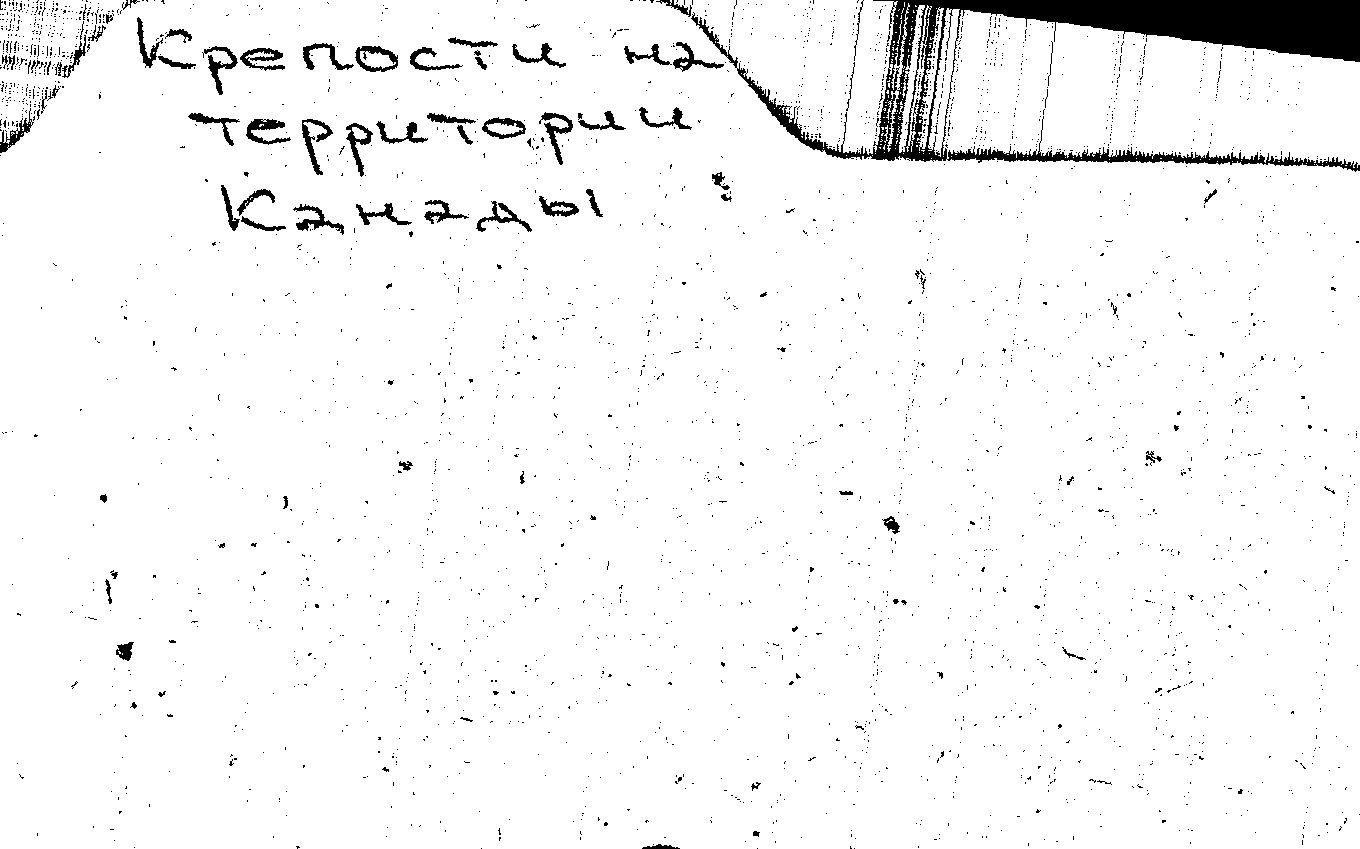 Крепости на
территории
Канады